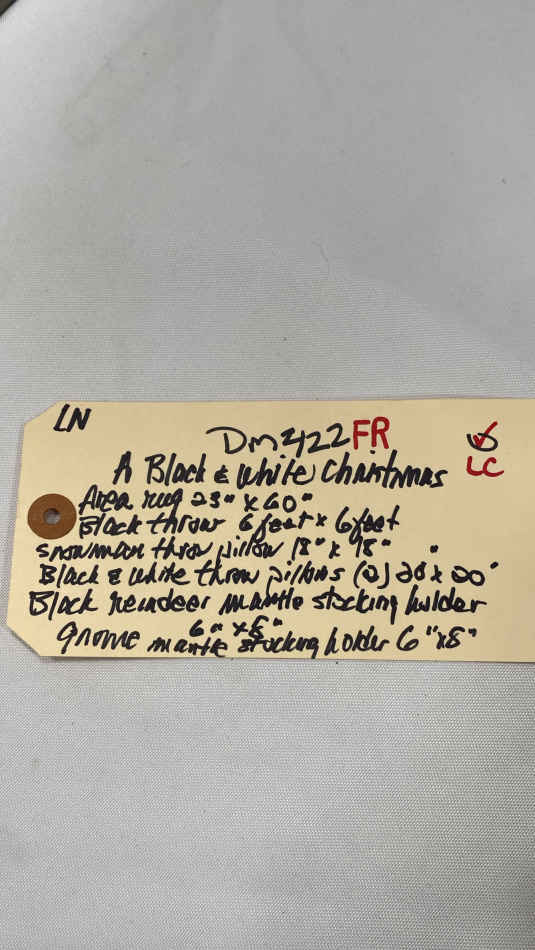 LN
DM422FR
LC
A Black & White Christmas
Area rug 23" x 60"
Black throw 6 feet x 6 feet
Snowman throw pillow 18" x 18"
Black & White throw pillows (2) 20 x 20"
Black reindeer mantle stocking holder
6" x 8"
gnome mantle stocking holder 6" x 8"